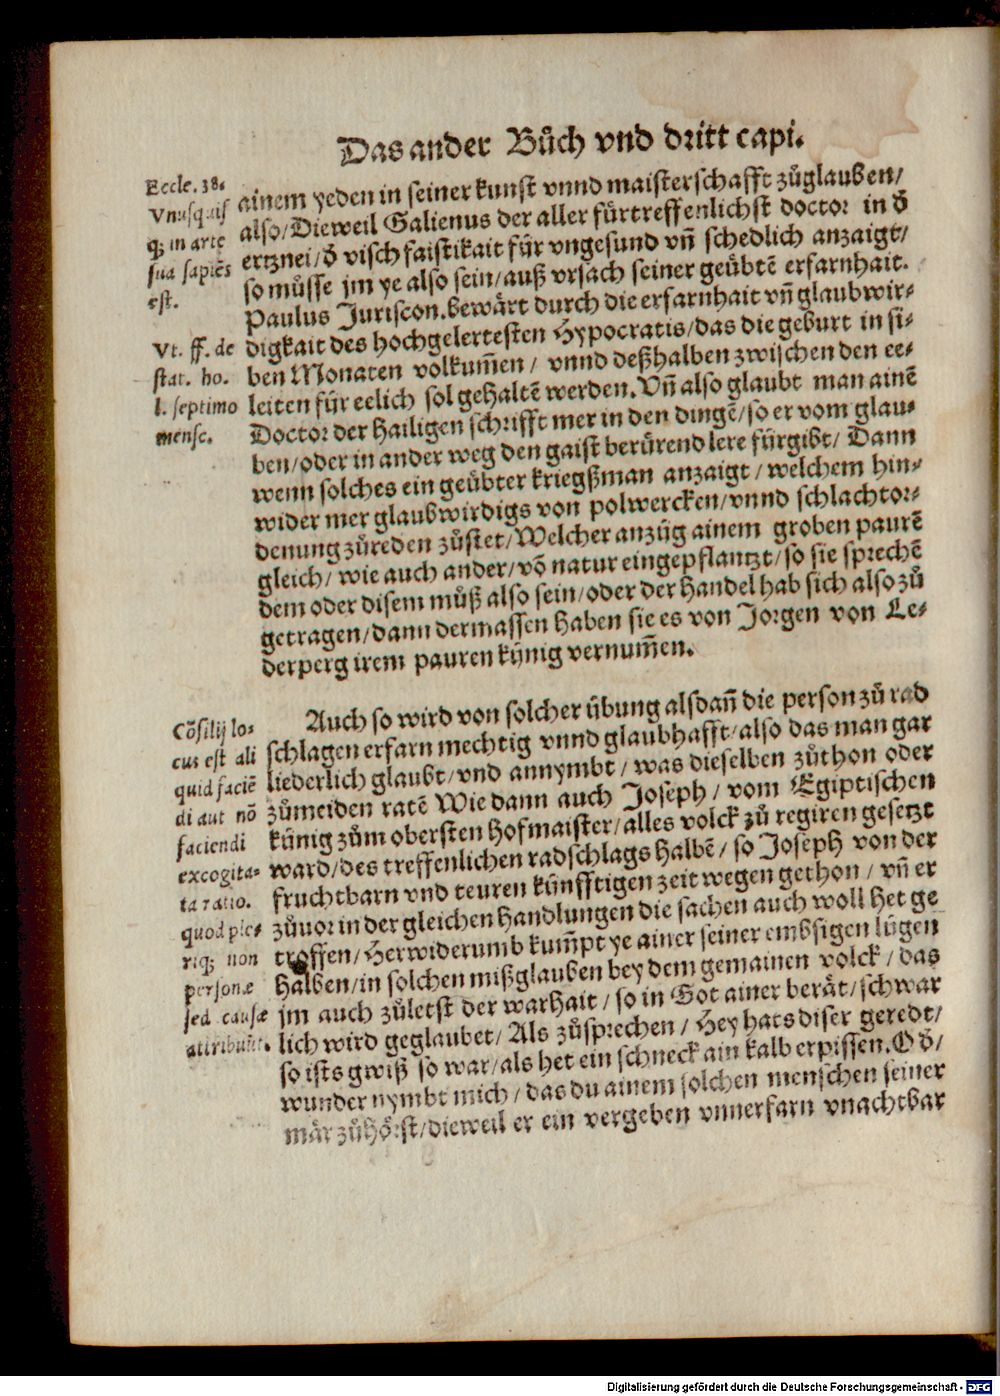 Das ander Bůch vnd dritt capi.
Eccle. 38.
Vnusquis
q; in arte
sua sapiēs
est.
Vt. ff. de
stat. ho.
l. septimo
mense.
ainem yeden in seiner kunst vnnd maisterschafft zůglauben/
also/Dieweil Galienus der aller fürtreffenlichst doctor in d̄
ertznei/d̄ visch faistikait für vngesund vñ schedlich anzaigt/
so můsse jm ye also sein/auß vrsach seiner geübtē erfarnhait.
Paulus Juriscon.bewärt durch die erfarnhait vñ glaubwir-
digkait des hochgelertesten Hypocratis/das die geburt in si-
ben Monaten volkum̄en/ vnnd deßhalben zwischen den ee-
leiten für eelich sol gehaltē werden.Vñ also glaubt man ainē
Doctor der hailigen schrifft mer in den dingē/so er vom glau-
ben/oder in ander weg den gaist berürend lere fürgibt/ Dann
wenn solches ein geübter kriegßman anzaigt/welchem hin-
wider mer glaubwirdigs von polwercken/vnnd schlachtor-
denung zůreden zůstet/Welcher anzüg ainem groben paurē
gleich/ wie auch ander/vō natur eingepflantzt/so sie sprechē
dem oder disem můß also sein/oder der handel hab sich also zů
getragen/dann dermassen haben sie es von Jorgen von Le-
derperg irem pauren künig vernum̄en.
Cōsilij lo-
cus est ali
quid faciē
di aut nō
faciendi
excogita-
ta ratio.
quod ple-
riq; non
personæ
sed causæ
attribuūt.
Auch so wird von solcher übung alsdañ die person zů rad
schlagen erfarn mechtig vnnd glaubhafft/also das man gar
liederlich glaubt/vnd annymbt/was dieselben zůthon oder
zůmeiden ratē Wie dann auch Joseph/ vom Egiptischen
künig zům obersten Hofmaister/alles volck zů regiren gesetzt
ward/des treffenlichen radschlags halbē/ so Joseph von der
fruchtbarn vnd teuren künfftigen zeit wegen gethon/ vñ er
zůuor in der gleichen handlungen die sachen auch woll het ge
troffen/Herwiderumb kum̄pt ye ainer seiner embsigen lügen
halben/in solchen mißglauben bey dem gemainen volck/das
jm auch zůletst der warhait/so in Got ainer berät/schwar
lich wird geglaubet/Als zůsprechen/Hey hats diser geredt/
so ists gwiß so war/als het ein schneck ain kalb erpissen.O d̄/
wunder nymbt mich/das du ainem solchen menschen seiner
mär zůhörst/dieweil er ein vergeben vnnerfarn vnachtbar
Digitalisierung gefördert durch die Deutsche Forschungsgemeinschaft - DFG